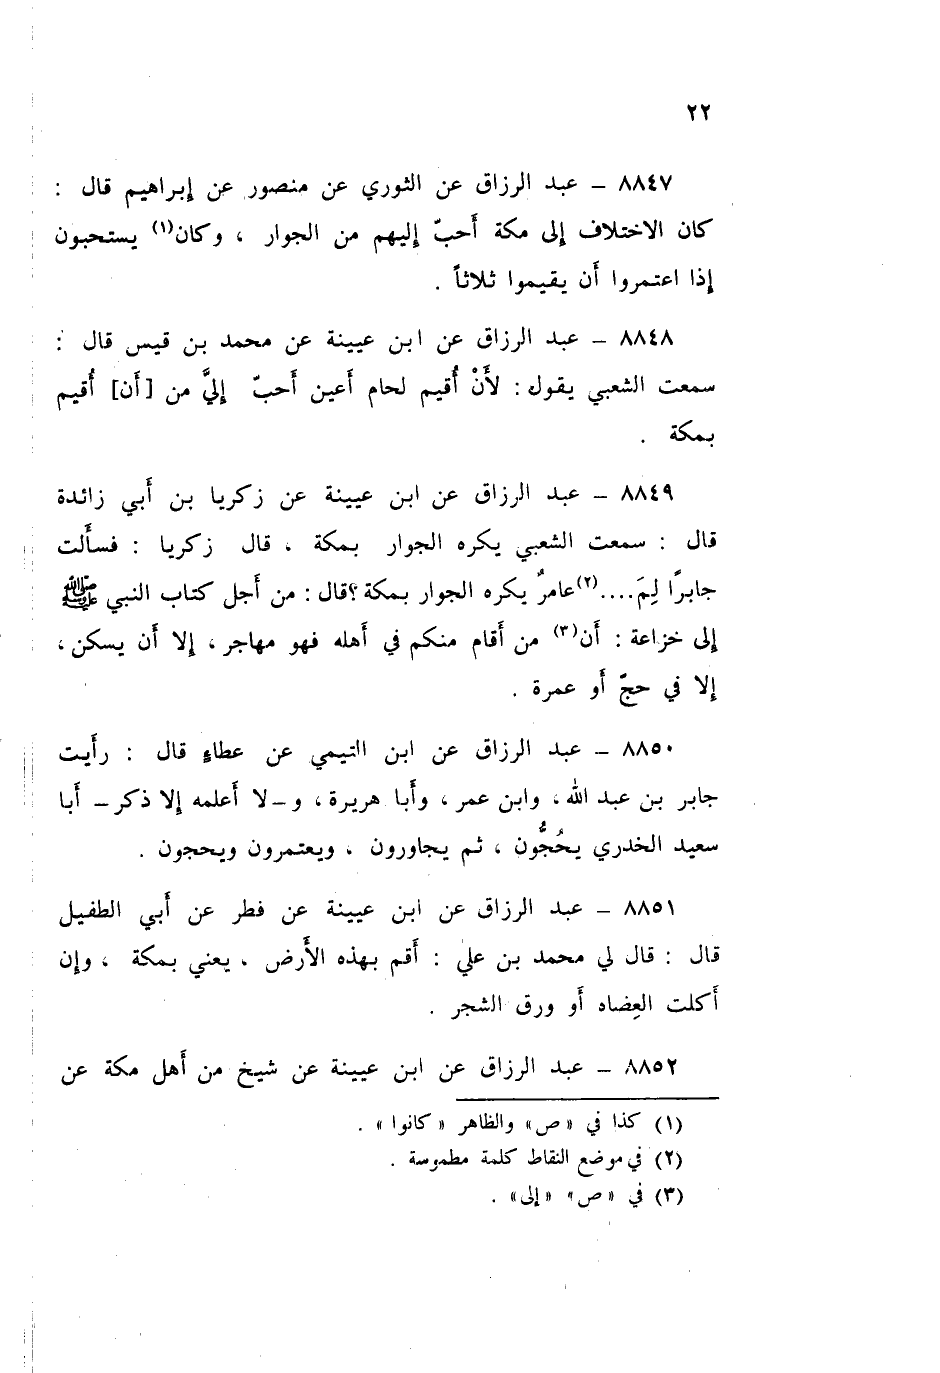 ٢٢
٨٨٤٧ – عبد الرزاق عن الثوري عن منصور عن إبراهيم قال :
كان الاختلاف إلى مكة أَحبّ إليهم من الجوار ، وكان(١) يستحبون
إذا اعتمروا أَن يقيموا ثلاثاً .
٨٨٤٨ – عبد الرزاق عن ابن عيينة عن محمد بن قيس قال :
سمعت الشعبي يقول : لأَنْ أُقيم لحام أَعين أَحبّ إليَّ من [أَن] أُقيم
بمكة .
٨٨٤٩ – عبد الرزاق عن ابن عيينة عن زكريا بن أَبي زائدة
قال : سمعت الشعبي يكره الجوار بمكة ، قال زكريا : فسأَلت
جابرًا لِمَ....(٢)عامرٌ يكره الجوار بمكة ؟قال : من أَجل كتاب النبي ﷺ
إلى خزاعة : أَن(٣) من أَقام منكم في أَهله فهو مهاجر ، إلا أَن يسكن ،
إلا في حجّ أَو عمرة .
٨٨٥٠ – عبد الرزاق عن ابن التيمي عن عطاءٍ قال : رأَيت
جابر بن عبد الله ، وابن عمر ، وأَبا هريرة ، و–لا أَعلمه إلا ذكر– أَبا
سعيد الخدري يحُجُّون ، ثم يجاورون ، ويعتمرون ويحجون .
٨٨٥١ – عبد الرزاق عن ابن عيينة عن فطر عن أَبي الطفيل
قال : قال لي محمد بن علي : أَقم بهذه الأَرض ، يعني بمكة ، وإن
أَكلت العِضاه أَو ورق الشجر .
٨٨٥٢ – عبد الرزاق عن ابن عيينة عن شيخ من أَهل مكة عن
(١) كذا في «ص» والظاهر «كانوا» .
(٢) في موضع النقاط كلمة مطموسة .
(٣) في «ص» «إلى» .